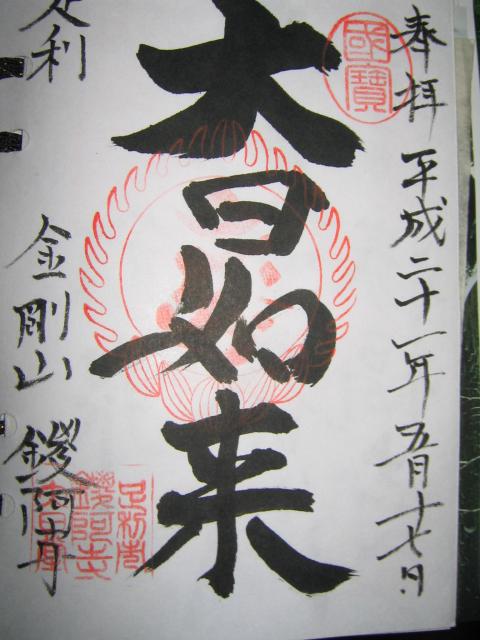 奉拝 平成二十一年五月十七日
國寶
大日如来
足利
金剛山 鑁阿寺
足利山
鑁阿寺